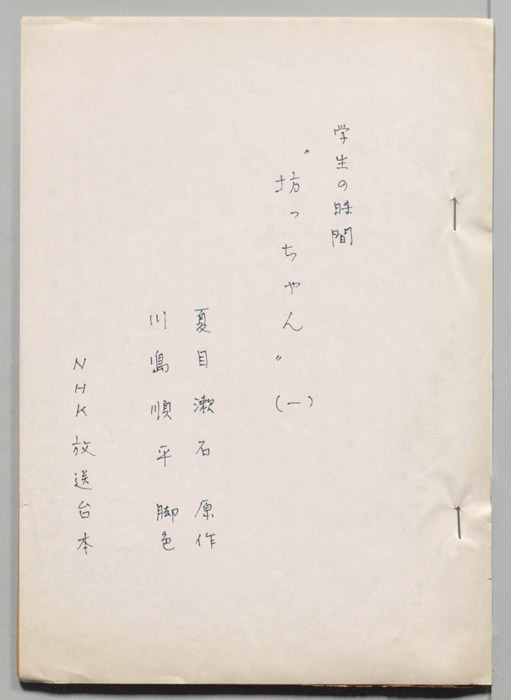 学生の時間
"坊っちゃん"(一)
夏目漱石 原作
川島順平 脚色
NHK放送台本